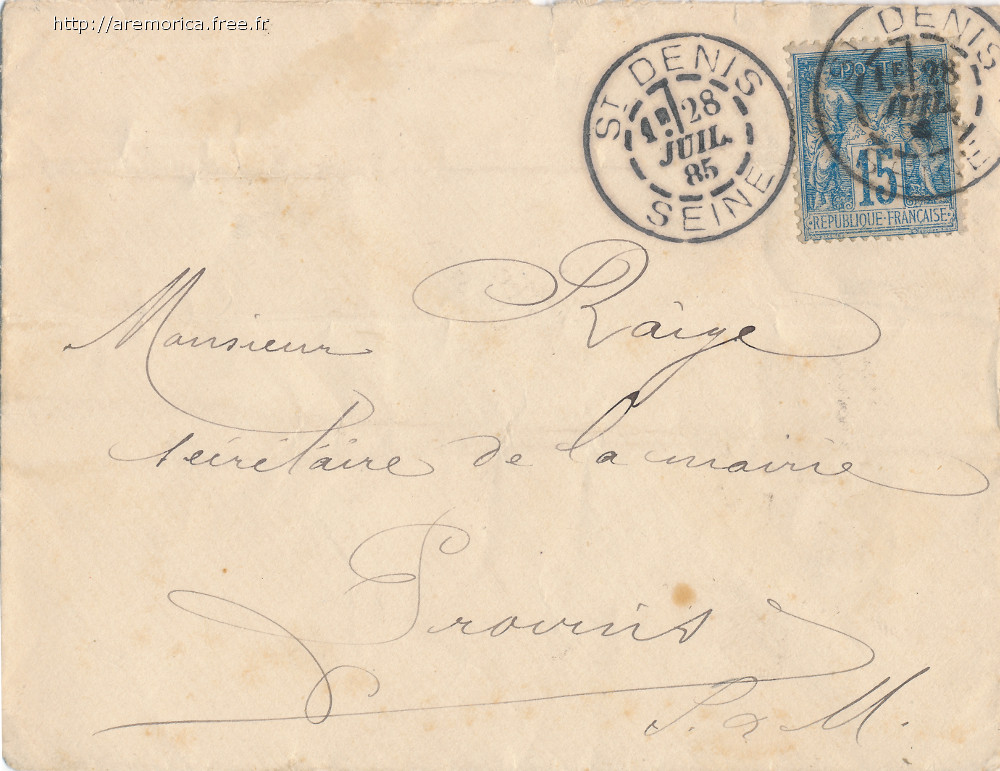 http://aremorica.free.fr
ST DENIS
1E 28
JUIL.
85
SEINE
DENIS
28
JUIL.
POSTES
15
REPUBLIQUE·FRANÇAISE
Monsieur Raige
secrétaire de la mairie
Provins
S. & M.